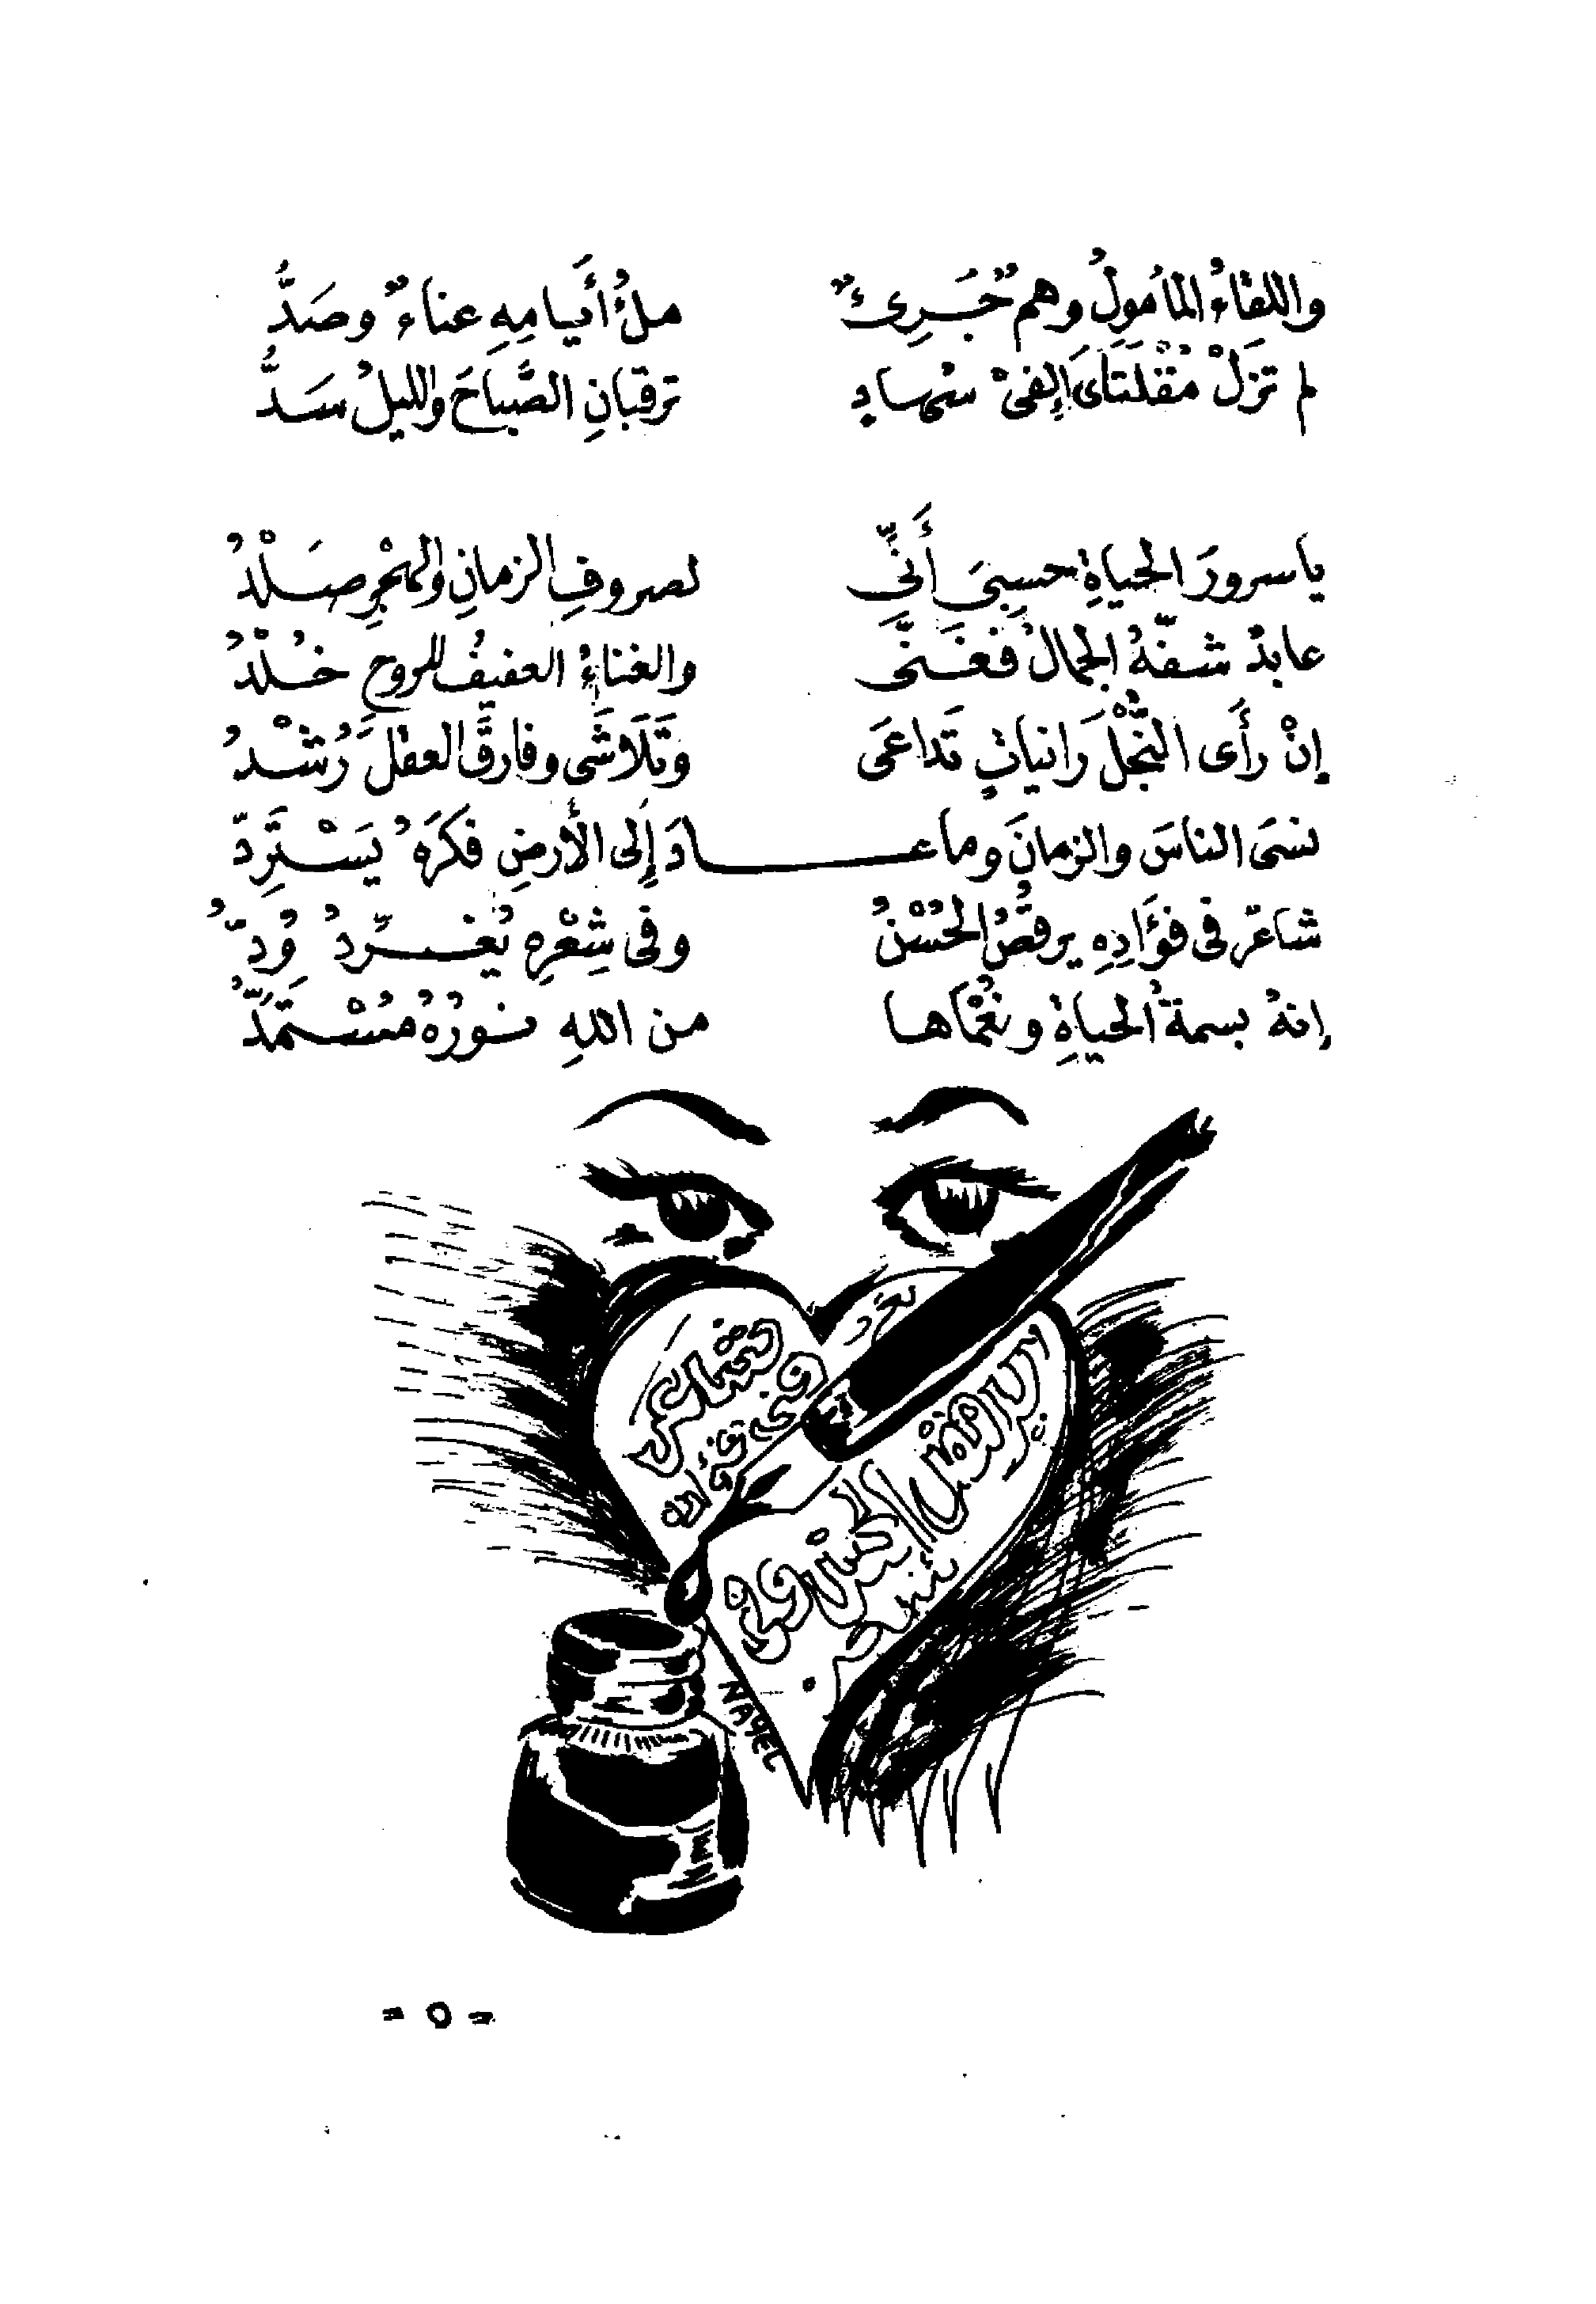 واللقاءُ المأمولُ وهمٌ جَرِىءٌ ملءُ أَيامِهِ عناءٌ وصَدُّ
لم تزَلْ مُقْلَتَاىَ إلفىْ سُهادٍ ترقبانِ الصَّباحَ والليلُ سَدُّ
ياسرورَ الحياةِ حسبىَ أَنِّى لصروفِ الزمانِ والهجْرِ صَلْدُ
عابدٌ شفّهُ الجمالُ فغَنَّى والغناءُ العفيفُ للروحِ خُلْدُ
إنْ رأَى النُّجْلَ رانياتٍ تَداعَى وتَلَاشَى وفارقَ العقلَ رُشْدُ
نسىَ الناسَ والزمانَ وماعــادَ إِلى الأَرضِ فكرَهُ يَسْتَرِدّ
شاعرٌ فى فؤَادِهِ يرقصُ الحُسْنُ وفى شِعْرِهِ يُغــرِّدُ وُدّ
إنهُ بسمةُ الحياةِ ونُعْمَاها من اللهِ نــورُهُ مُسْتَمَدُّ
شاعر
فى فؤاده
يرقص الحسن وفى
NAYEL
= ٥ =